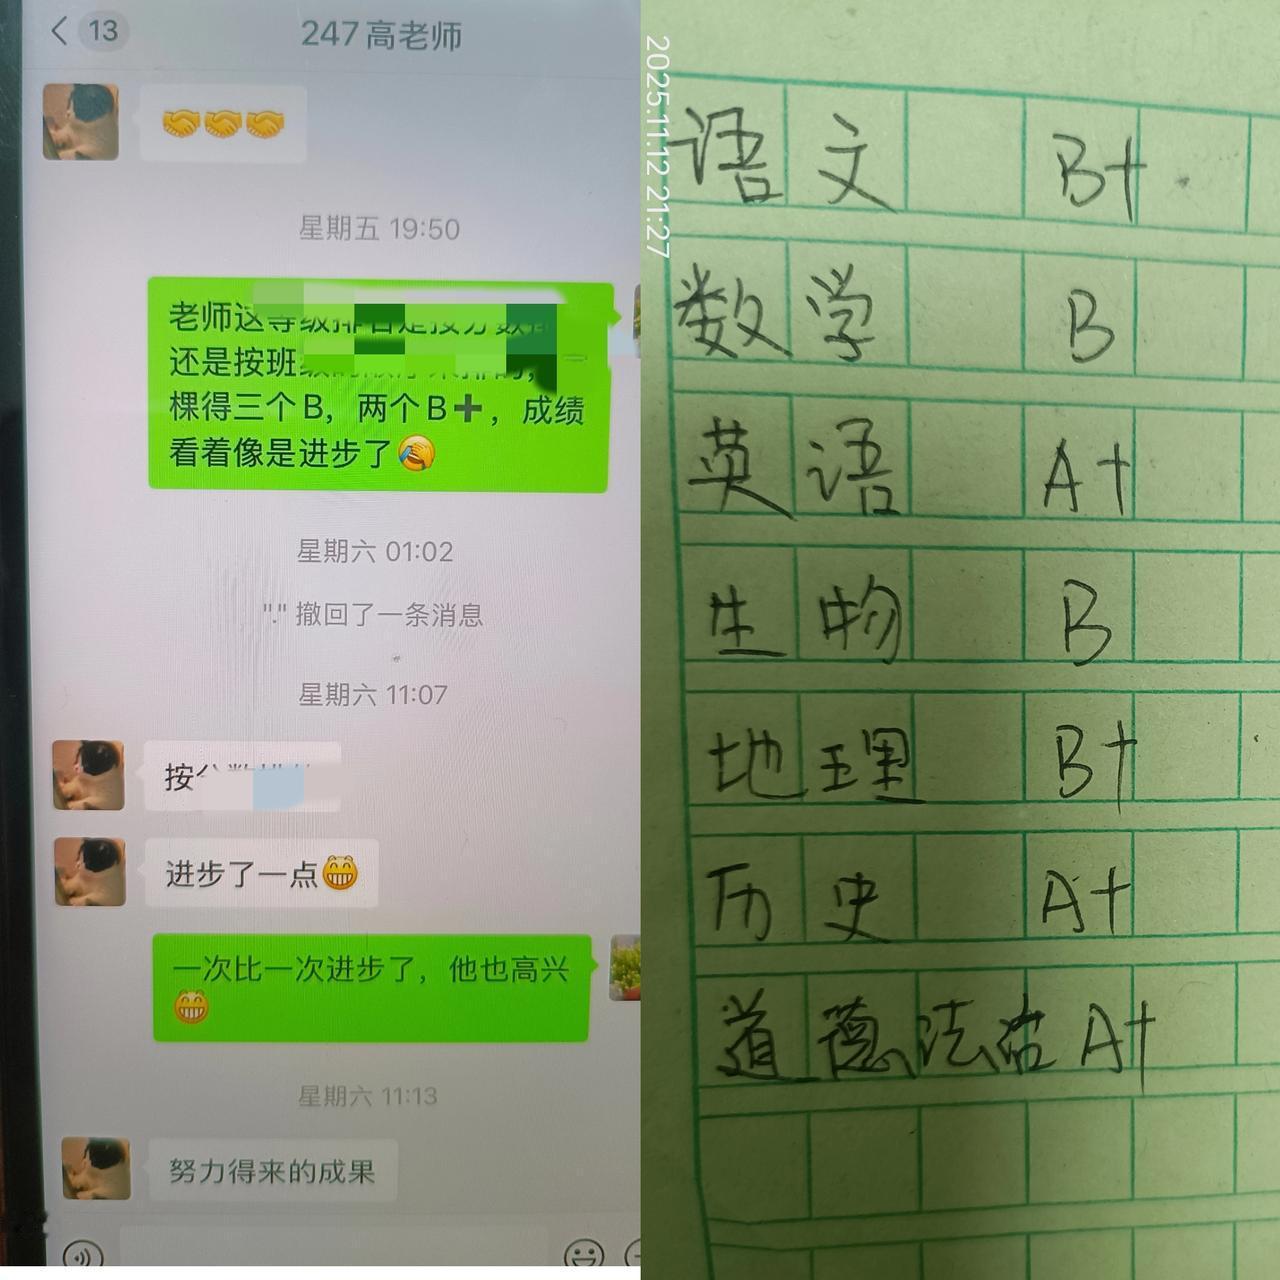 13
247高老师
星期五 19:50
老师这等级排名是按分数
还是按班
棵得三个B，两个B➕，成绩
看着像是进步了
星期六 01:02
"." 撤回了一条消息
星期六 11:07
按
进步了一点
一次比一次进步了，他也高兴
星期六 11:13
努力得来的成果
2025.11.12 21:27
语文 B+
数学 B
英语 A+
生物 B
地理 B+
历史 A+
道德法治 A+